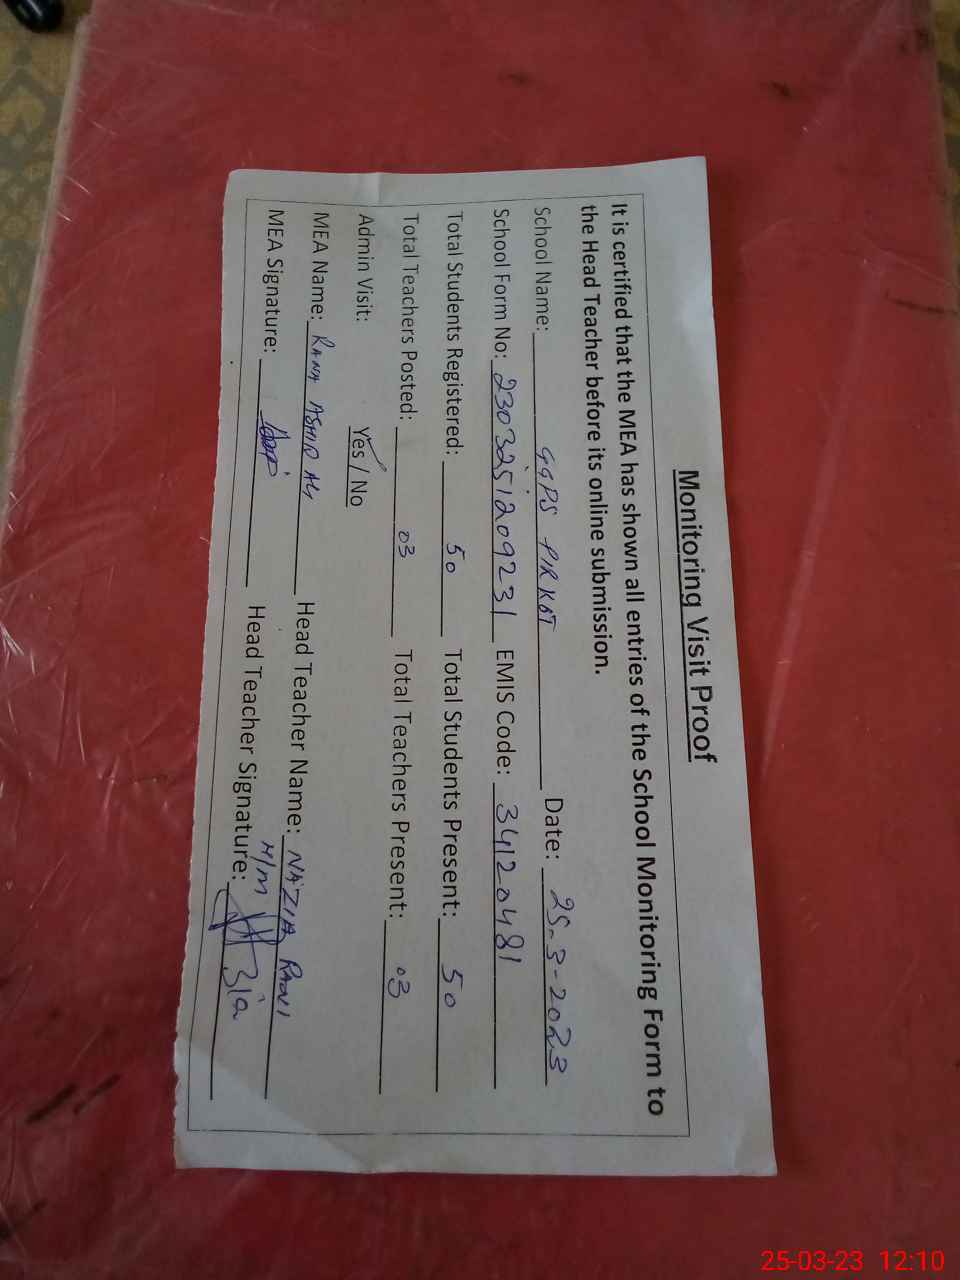 Monitoring Visit Proof
It is certified that the MEA has shown all entries of the School Monitoring Form to
the Head Teacher before its online submission.
School Name: GGPS PIR KOT Date: 25-3-2023
School Form No: 2303251209231 EMIS Code: 34120481
Total Students Registered: 50 Total Students Present: 50
Total Teachers Posted: 03 Total Teachers Present: 03
Admin Visit: Yes / No
MEA Name: RANA ASHIR ALI Head Teacher Name: NAZIA
MEA Signature: Head Teacher Signature: H/M
25-03-23 12:10